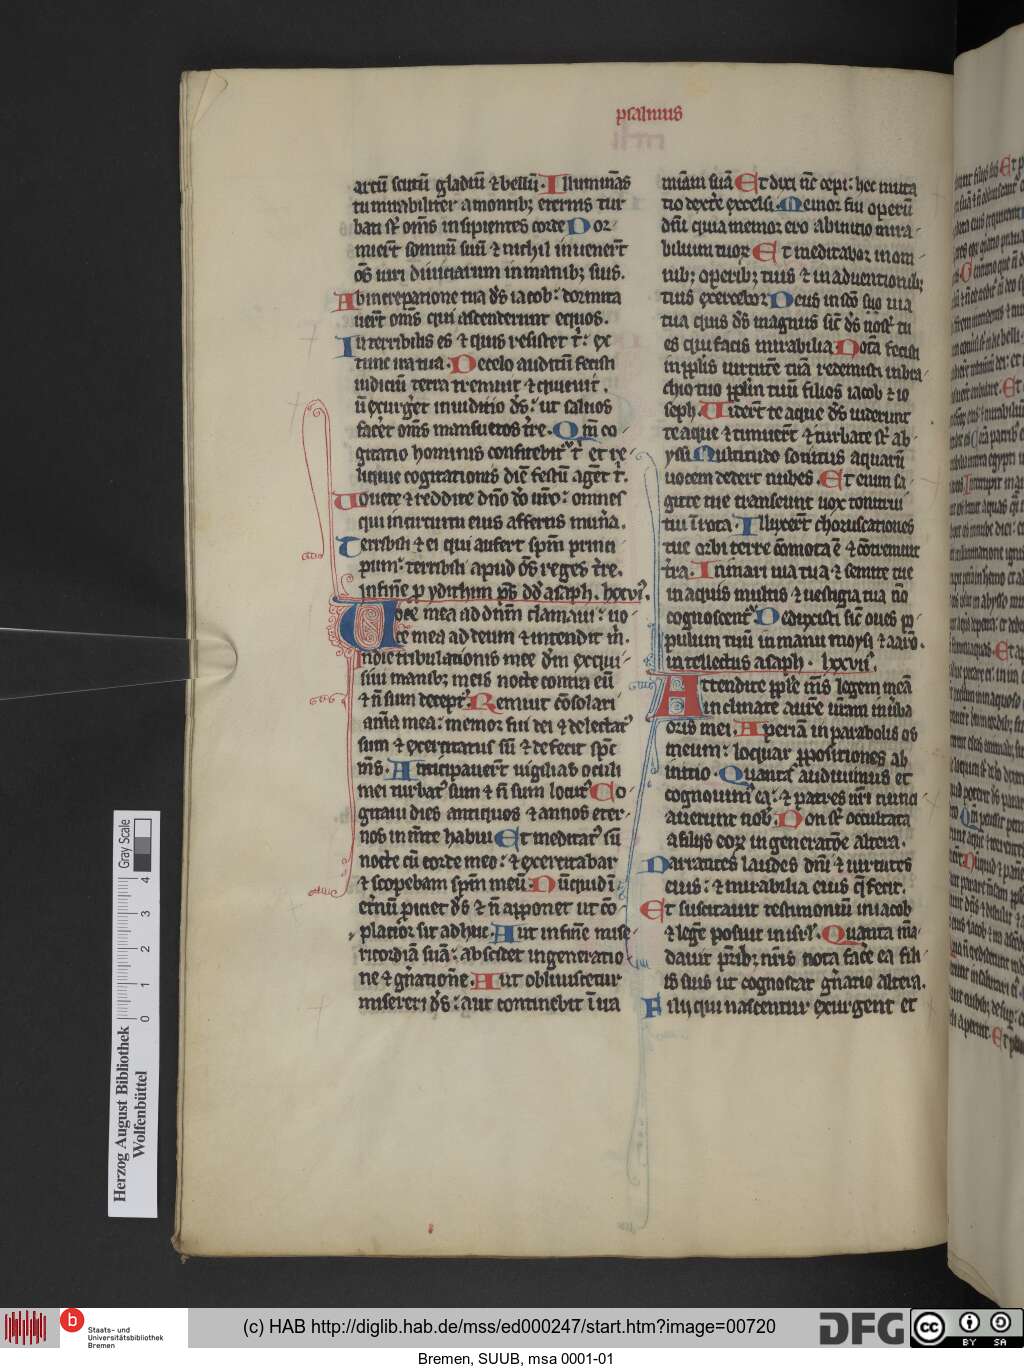 psalmus
arcū scutū gladiū ⁊ bellū. Illuminās
tu mirabiliter a montibꝫ eternis tur
bati st̄ om̄s insipientes corde Dor-
mierūt somnū suū ⁊ nichil inuenerūt
oēs uiri diuiciarum in manibꝫ suis.
Ab increpatione tua ds̄ iacob: dormita
uerūt om̄s qui ascenderunt equos.
Tu terribilis es ⁊ quis resistet t̄: ex
tunc ira tua. De celo auditū fecisti
iudiciū terra tremuit ⁊ quieuit.
exurḡet in iudicio ds̄: ut saluos
facēt om̄s mansuetos tr̄e. Qm̄ co-
gitatio hominis confitebit̄ t̄ et re-
liquie cogitationis diē festū agēt t̄.
Uouete ⁊ reddite dn̄o dō uro: omnes
qui in circuitu eius affertis mun̄a.
Terribili ⁊ ei qui aufert spm̄ princi
pum: terribili apud oēs reges tr̄e.
in finē p ydithun ps̄ dd̄ asaph. lxxvi.
Uoce mea ad dnm̄ clamaui: uo-
ce mea ad deum ⁊ intendit m̄.
In die tribulationis mee dm̄ exqui-
siui manibꝫ meis nocte contra eū
⁊ n̄ sum decept̄. Renuit cōsolari
aīma mea: memor fui dei ⁊ delectat̄
sum ⁊ exercitatus sū ⁊ defecit spc̄
m̄s. Anticipauerūt uigilias oculi
mei turbat̄ sum ⁊ n̄ sum locut̄ Co-
gitaui dies antiquos ⁊ annos eter-
nos in m̄te habui Et meditat̄ sū
nocte cū corde meo: ⁊ exercitabar
⁊ scopebam spm̄ meū. Nūquid ī
et̄nū piciet ds̄ ⁊ n̄ apponet ut cō-
placitior sit adhuc. Aut in finē mise-
ricordiā suā: abscidet in generatio-
ne ⁊ gn̄atione. Aut obliuiscetur
misereri ds̄: aut continebit ī ira
miām suā Et dixi nc̄ cepi: hec muta
tio dextr̄e excelsi. Memor fui operū
dn̄i quia memor ero ab initio mira-
bilium tuoꝝ Et meditabor in om-
nibꝫ operibꝫ tuis ⁊ in aduentionibꝫ
tuis exercebor. Deus in scō suo uia
tua quis ds̄ magnus sic̄ ds̄ nost̄ tu
es qui facis mirabilia Notā fecisti
in pplis̄ uirtutē tuā redemisti in bra-
chio tuo pplm̄ tuū filios iacob ⁊ io
seph. Uiderūt te aque ds̄ uiderunt
te aque ⁊ timuerūt ⁊ turbate st̄ ab-
yssi Multitudo sonitus aquarū
uocem dederūt nubes. Et enim sa-
gitte tue transeunt uox tonitrui
tui ī rota. Illuxerūt choruscationes
tue orbi terre cōmota ē ⁊ cōtremuit
tr̄ra. In mari uia tua ⁊ semite tue
in aquis multis ⁊ uestigia tua nō
cognoscent̄. Deduxisti sic̄ oues p-
pulum tuū in manu moysi ⁊ aarō.
intellectus asaph. lxxvii.
Attendite pple m̄s legem meā
inclinate aurē uram in uba
oris mei. Aperiā in parabolis os
meum: loquar ppositiones ab
initio. Quanta audiuimus et
cognouim̄ ea: ⁊ patres nr̄i narra-
uerunt nob̄. Non st̄ occultata
a filijs eoꝝ in generatōe altera.
Narrantes laudes dn̄i ⁊ uirtutes
eius: ⁊ mirabilia eius q̄ fecit.
Et suscitauit testimoniū in iacob
⁊ legē posuit in isrl̄. Quanta mā-
dauit pr̄ibꝫ nr̄is nota facē ea fili-
is suis ut cognoscat gn̄atio altera.
Filij qui nascentur exurgent et
Gray Scale
0 1 2 3 4
Herzog August Bibliothek
Wolfenbüttel
b Staats- und
Universitätsbibliothek
Bremen
(c) HAB http://diglib.hab.de/mss/ed000247/start.htm?image=00720
DFG
cc BY SA
Bremen, SUUB, msa 0001-01